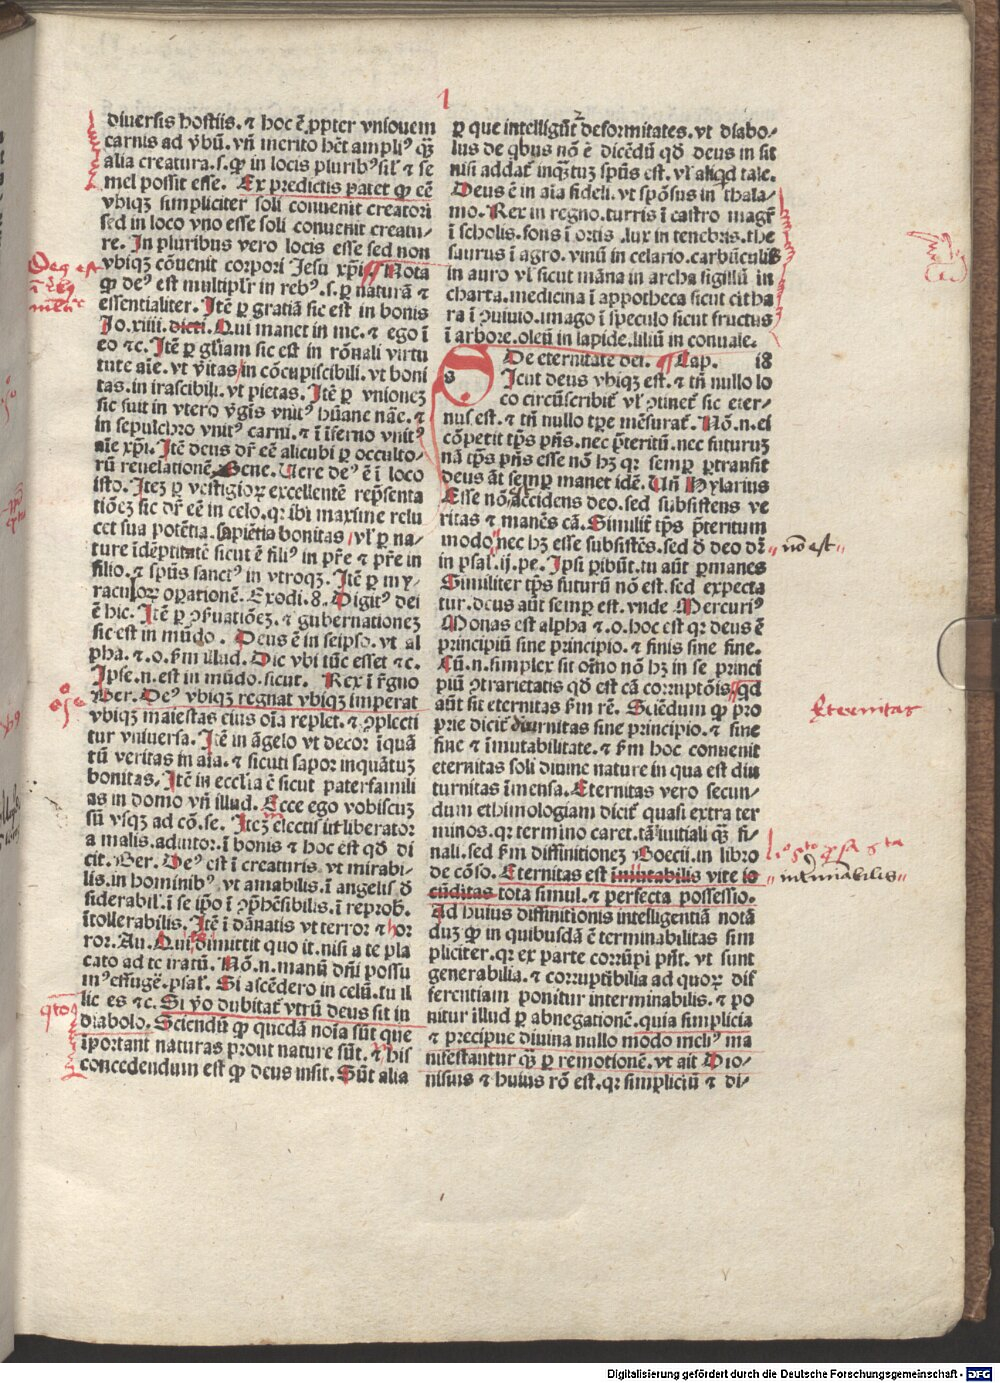 1
diuersis hostiis. ⁊ hoc ē ꝓpter vniouem
carnis ad v̄bū. vn̄ merito hēt ampliꝰ qƷ̄
alia creatura. s. ꝙ in locis pluribꝰ sil̛ ⁊ se
mel possit esse. Ex predictis patet ꝙ eē
vbiqƷ simpliciter soli conuenit creatori
sed in loco vno esse soli conuenit creatu-
re. In pluribus vero locis esse sed non
vbiqƷ cōuenit corpori Jesu xp̄i. Nota
ꝙ deꝰ est multipl̛r in rebꝰ. s. ꝑ naturā ⁊
essentialiter. Itē ꝑ gratiā sic est in bonis
Jo. xiiii. dicti. Qui manet in me. ⁊ ego ī
eo ⁊c. Itē ꝑ gl̄iam sic est in rōnali virtu
tute aīe. vt v̄itas in cōcupiscibili. vt boni
tas. in irascibili. vt pietas. Itē ꝑ vnioneƷ
sic fuit in vtero v̄gīs vnitꝰ hūane nāe. ⁊
in sepulchro vnitꝰ carni. ⁊ ī īferno vnitꝰ
aīe xp̄i. Itē deus dr̄ eē alicubi ꝑ occulto-
rū reuelationē. Gene. Uere deꝰ ē ī loco
isto. IteƷ ꝑ vestigioꝝ excellentē rep̄senta
tiōeƷ sic dr̄ eē in celo. qꝛ ibi maxime relu
cet sua potētia. sapiētia bonitas vl̛ ꝑ na-
ture īdēptitatē sicut ē filiꝰ in pr̄e ⁊ pr̄e in
filio. ⁊ spūs sanctꝰ in vtroqƷ. Itē ꝑ my-
raculoꝝ oꝑationē. Exodi. 8. Digitꝰ dei
ē hic. Itē ꝑ ꝯẜuatiōeƷ. ⁊ gubernationeƷ
sic est in mūdo. Deus ē in seipso. vt al
pha. ⁊ .o. ẜm illud. Dic vbi tūc esset ⁊c.
Ipse. n. est in mūdo. sicut. Rex ī r̄gno
Ber. Deꝰ vbiqƷ regnat vbiqƷ imperat
vbiqƷ maiestas eius oīa replet. ⁊ ꝯplecti
tur vniuersa. Itē in āgelo vt decor īquā
tū veritas in aīa. ⁊ sicuti sapor inquātuƷ
bonitas. Itē in ecclīa ē sicut paterfamili
as in domo vn̄ illud. Ecce ego vobiscuƷ
sū vsqƷ ad cō. se. IteƷ electis vt liberator
a malis. adiutor. ī bonis ⁊ hoc est qd̄ di
cit. Ber. Deꝰ est ī creaturis vt mirabi-
lis. in hominibꝰ. vt amabilis. ī angelis d̄
siderabil̛. ī se ip̄o ī ꝯp̄hēsibilis. ī reprob̛.
ītollerabilis. Itē ī dānatis vt terror ⁊ hor
ror. Au. Qui te dimittit quo it. nisi a te pla
cato ad te iratū. Nō. n. manū dn̄i possu
mꝰ effugē. psal̛. Si ascēdero in celū. tu il
lic es ⁊c. Si v̄o dubitat̛ vtrū deus sit in
diabolo. Sciendū ꝙ quedā noīa sūt que
īportant naturas prout nature sūt. ⁊ his
concedendum est ꝙ deus insit. Sūt alia
ꝑ que intelligūt̛ deformitates. vt diabo-
lus de qbus nō ē dicēdū qd̄ deus in sit
nisi addat̛ inqƷtuƷ spūs est. vl̛ aliqd tale.
Deus ē in aīa fideli. vt spōsus in thala-
mo. Rex in regno. turris ī castro magr̄
ī scholis. fons ī ortis. lux in tenebris. the
saurus ī agro. vinū in celario. carbūculus
in auro vl̛ sicut māna in archa sigillū in
charta. medicina ī appotheca sicut cithа
ra ī ꝯuiuio. imago ī speculo sicut fructus
ī arbore. oleū in lapide. liliū in conualle.
De eternitate dei. Cap. i8
Sicut deus vbiqƷ est. ⁊ tn̄ nullo lo
co circūscribit̛ vl̛ ꝯtinet̛ sic eter-
nus est. ⁊ tn̄ nullo tp̄e mēsurat̛. Nō. n. ei
cōpetit tp̄s pn̄s. nec p̄teritū. nec futuruƷ
nā tp̄s pn̄s esse nō hƷ qꝛ semꝑ ꝑtransit
deus āt semꝑ manet idē. Un̄ Hylarius
Esse nō accidens deo. sed subsistens ve
ritas ⁊ manēs cā. Similit̛ tp̄s p̄teritum
modo nec hƷ esse subsistēs. sed d̄ deo dr̄
in psal. ij. pe. Ipsi ꝑibūt. tu aūt ꝑmanes
Similiter tp̄s futurū nō est. sed expecta
tur. deus aūt semꝑ est. vnde Mercuriꝰ
Monas est alpha ⁊ .o. hoc est qꝛ deus ē
principiū sine principio. ⁊ finis sine fine.
Cū. n. simplex sit oīno nō hƷ in se princi
piū ꝯtrarietatis qd̄ est cā corruptōis. qd
aūt sit eternitas ẜm rē. Sciēdum ꝙ pro
prie dicit̛ diurnitas sine principio. ⁊ sine
fine ⁊ īmutabilitate. ⁊ ẜm hoc conuenit
eternitas soli diuine nature in qua est diu
turnitas īmensa. Eternitas vero secun-
dum ethimologiam dicit̛ quasi extra ter
minos. qꝛ termino caret. tā initiali qƷ̄ fi-
nali. sed ẜm diffinitioneƷ Boecii. in libro
de cōso. Eternitas est imutabilis vite io
cūditas tota simul. ⁊ perfecta possessio.
Ad huius diffinitionis intelligentiā notā
duƷ ꝙ in quibusdā ē terminabilitas sim
pliciter. qꝛ ex parte corrūpi pn̄t. vt sunt
generabilia. ⁊ corruptibilia ad quoꝝ dif
ferentiam ponitur interminabilis. ⁊ po
nitur illud ꝑ abnegationē. quia simplicia
⁊ precipue diuina nullo modo meliꝰ ma
nifestantur qƷ̄ ꝑ remotionē. vt ait Dio-
nisius ⁊ huius rō est. qꝛ simpliciū ⁊ di-
nō est
Eternitas
interminabilis
Digitalisierung gefördert durch die Deutsche Forschungsgemeinschaft - DFG